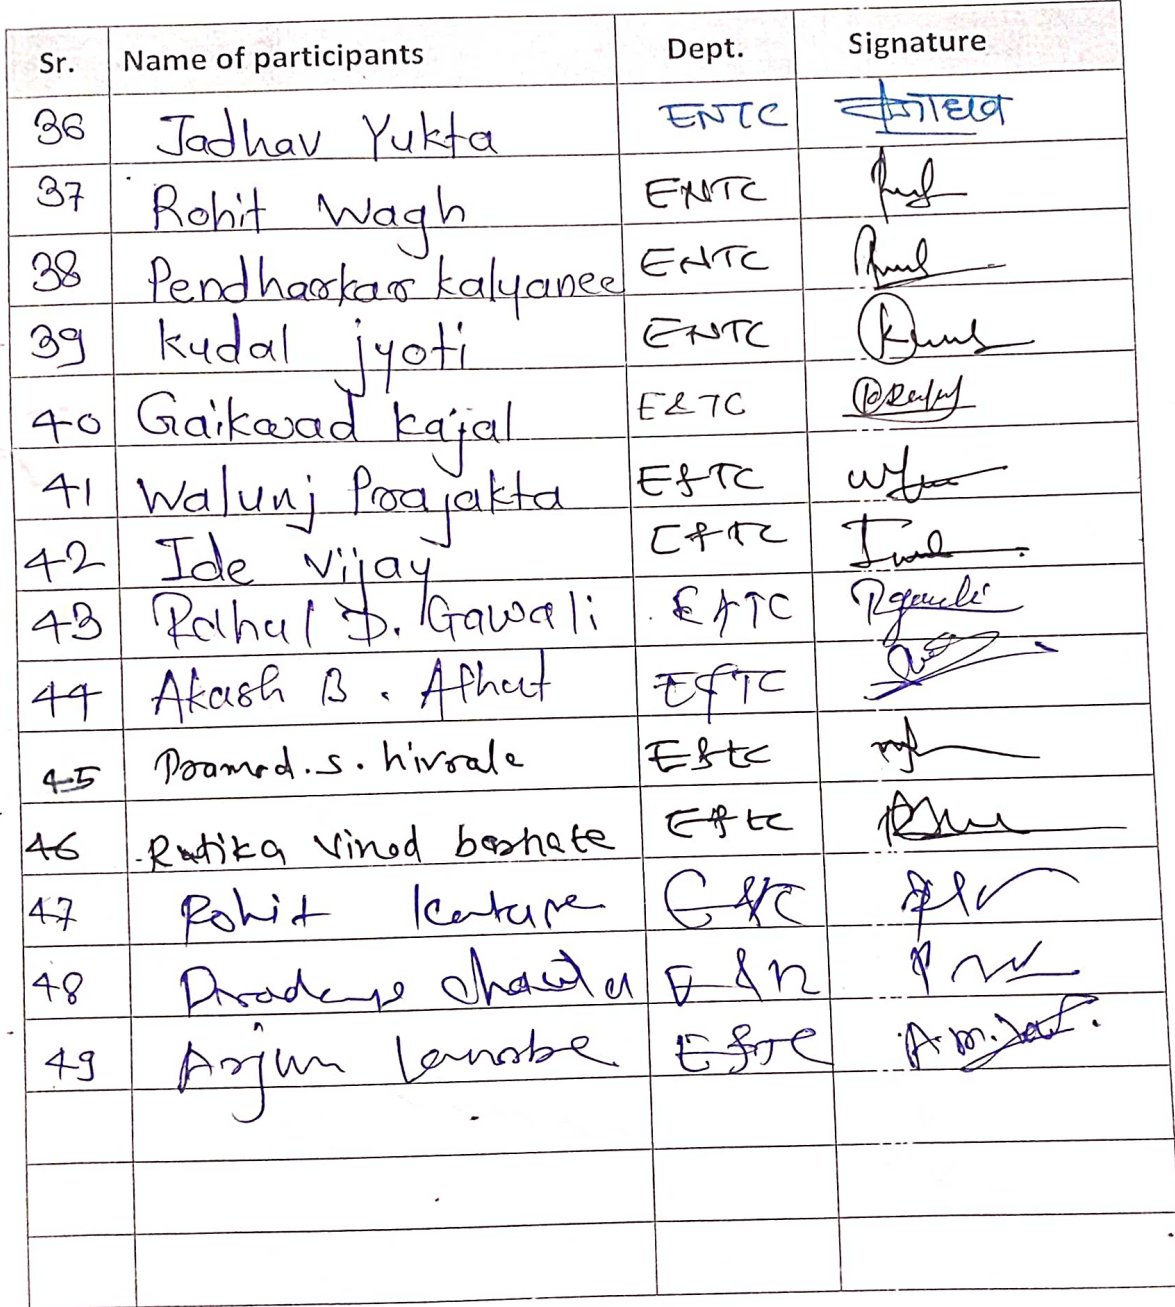 Sr. Name of participants Dept. Signature
36 Jadhav Yukta ENTC
37 Rohit Wagh ENTC
38 Pendharkar kalyanee ENTC
39 kudal jyoti ENTC
40 Gaikwad kajal E&TC
41 Walunj Prajakta E&TC
42 Ide Vijay E&TC
43 Rahul D. Gawali E&TC Rgawali
44 Akash B. Aphut E&TC
45 Pramod.s.hivrale E&tc
46 Rutika Vinod barhate E&tc
47 Rohit E&TC
48
49 Arjun E&TC